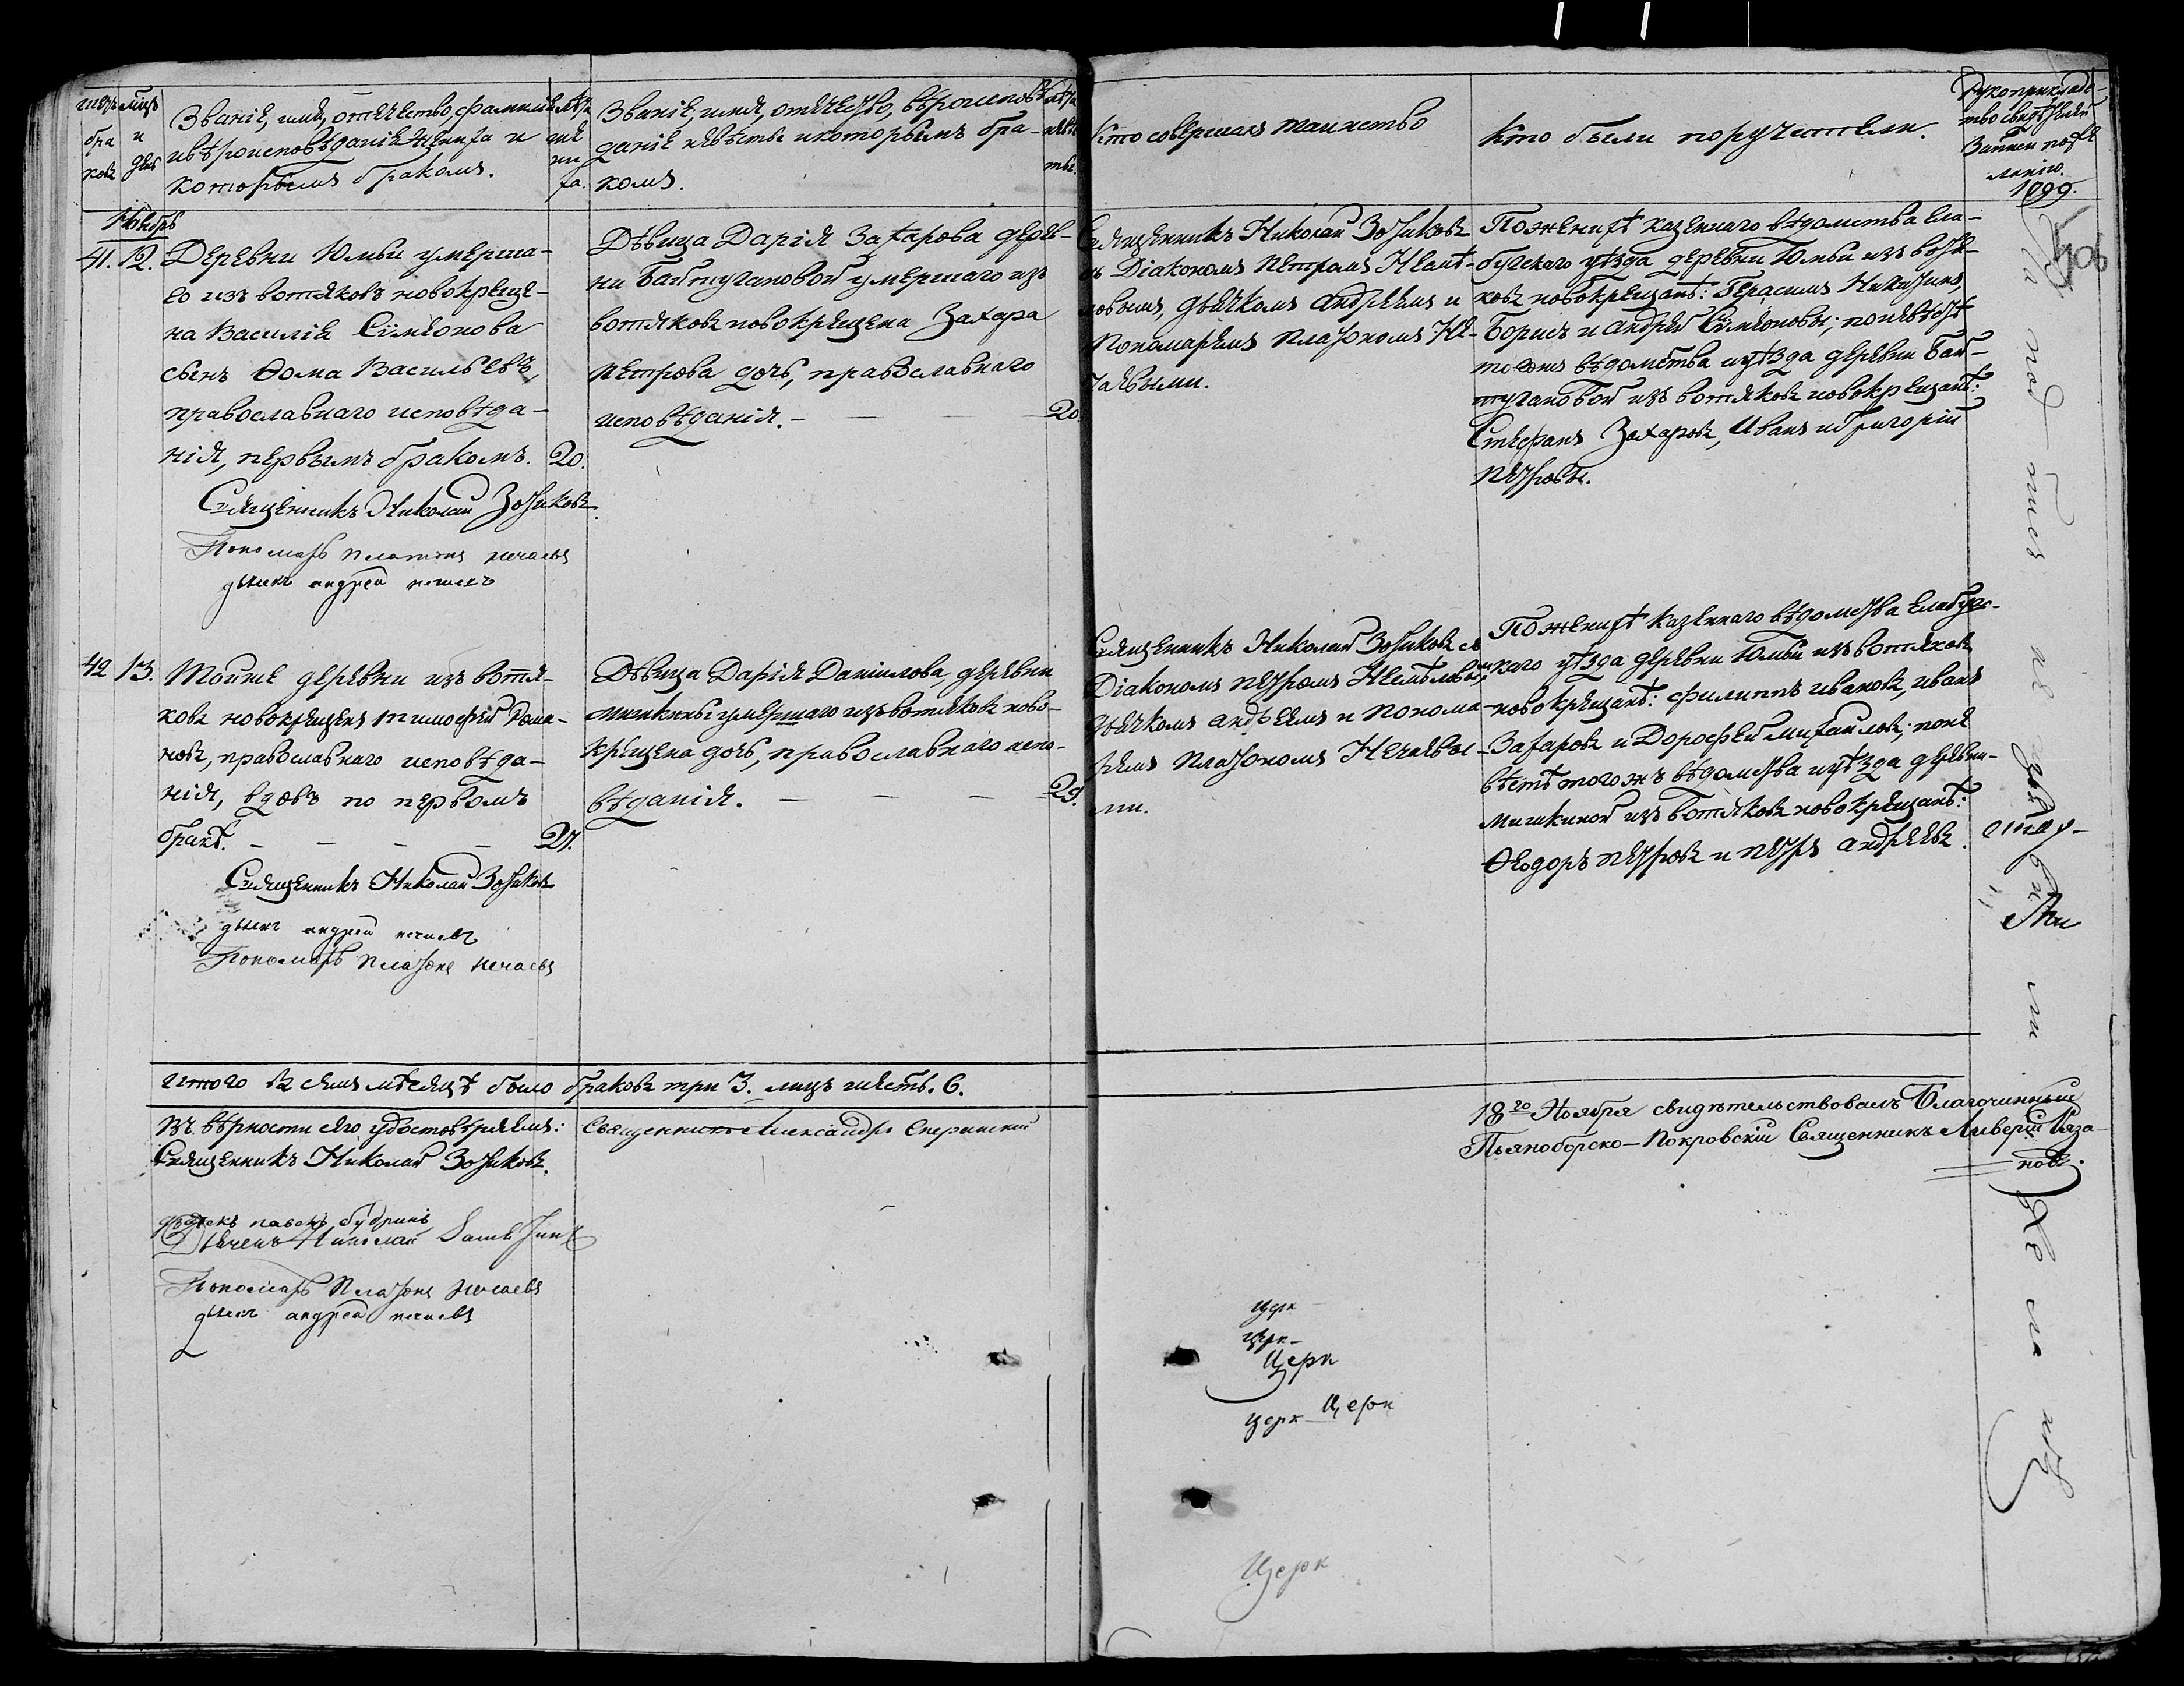 бра
ковъ
и
Званіе, имя, отечество, фамилія
и вѣроисповѣданіе жениха и
которымъ бракомъ.
лѣта
же
ни
ха.
Званіе, имя, отечество, вѣроисповѣ-
даніе невѣсты и которымъ бра-
комъ.
Кто совершалъ таинство
Кто были поручители.
Рукоприкладс-
тво свидѣтелей
1099.
Ноябрь
41. 12. Деревни Юмьи умерша-
го изъ вотяковъ новокреще-
на Василія Сѵмеонова
сынъ Ѳома Васильевъ,
православнаго исповѣда-
нія, первымъ бракомъ. 20.
Священникъ Николай Зотиковъ.
Пономарь Платонъ Нечаевъ
дьячекъ андрей нечаевъ
Дѣвица Дарія Захарова дерев-
ни Байтугановой умершаго изъ
вотяковъ новокрещена Захара
Петрова дочь, православнаго
исповѣданія. — 20.
Священникъ Николай Зотиковъ
съ Діакономъ Петромъ
дьячкомъ Андреемъ и
Пономаремъ Платономъ Не-
чаевыми.
По женихѣ казеннаго вѣдомства Ела-
бугскаго уѣзда деревни Юмьи изъ вотя-
ковъ новокрещанъ: Герасимъ Никитинъ,
Борисъ и Андрей Сѵмеоновы; по невѣстѣ
тогожъ вѣдомства и уѣзда деревни Бай-
тугановой изъ вотяковъ новокрещанъ:
Стефанъ Захаровъ, Иванъ и Григорій
Петровы.
42 13. Тойже деревни изъ вотя-
ковъ новокрещенъ Тимофей Рома-
новъ, православнаго исповѣда-
нія, вдовъ по первомъ
бракѣ. — — — — 27.
Священникъ Николай Зотиковъ
дьячекъ андрей нечаевъ
Пономарь Платонъ Нечаевъ
Дѣвица Дарія Даніилова, деревни
Мишкины умершаго изъ вотяковъ ново-
крещена дочь, православнаго испо-
вѣданія. — — — 29.
Священникъ Николай Зотиковъ съ
Діакономъ Петромъ
дьячкомъ Андреемъ и Понома-
ремъ Платономъ Нечаевы-
ми.
По женихѣ казеннаго вѣдомства Елабугс-
каго уѣзда деревни Юмьи изъ вотяковъ
новокрещанъ: Филиппъ Ивановъ, Иванъ
Захаровъ и Дорофей Михайловъ; по не
вѣстѣ тогожъ вѣдомства и уѣзда деревни
Мишкиной изъ вотяковъ новокрещанъ:
Ѳеодоръ Петровъ и Петръ Андреевъ.
Итого въ семъ мѣсяцѣ было браковъ три 3. лицъ шесть. 6.
Въ вѣрности сего удостовѣряемъ:
Священникъ Николай Зотиковъ.
Священникъ Александръ Сперанскій
дьячекъ павелъ бубринъ
Дьячекъ Николай
Пономарь Платонъ Нечаевъ
дьячекъ андрей нечаевъ
18го Ноября свидѣтельствовалъ Благочинный
Пьяноборско-Покровскій Священникъ Ливерій Ряза-
новъ.
Церк
Церк
Церк
Церк Церк
Церк